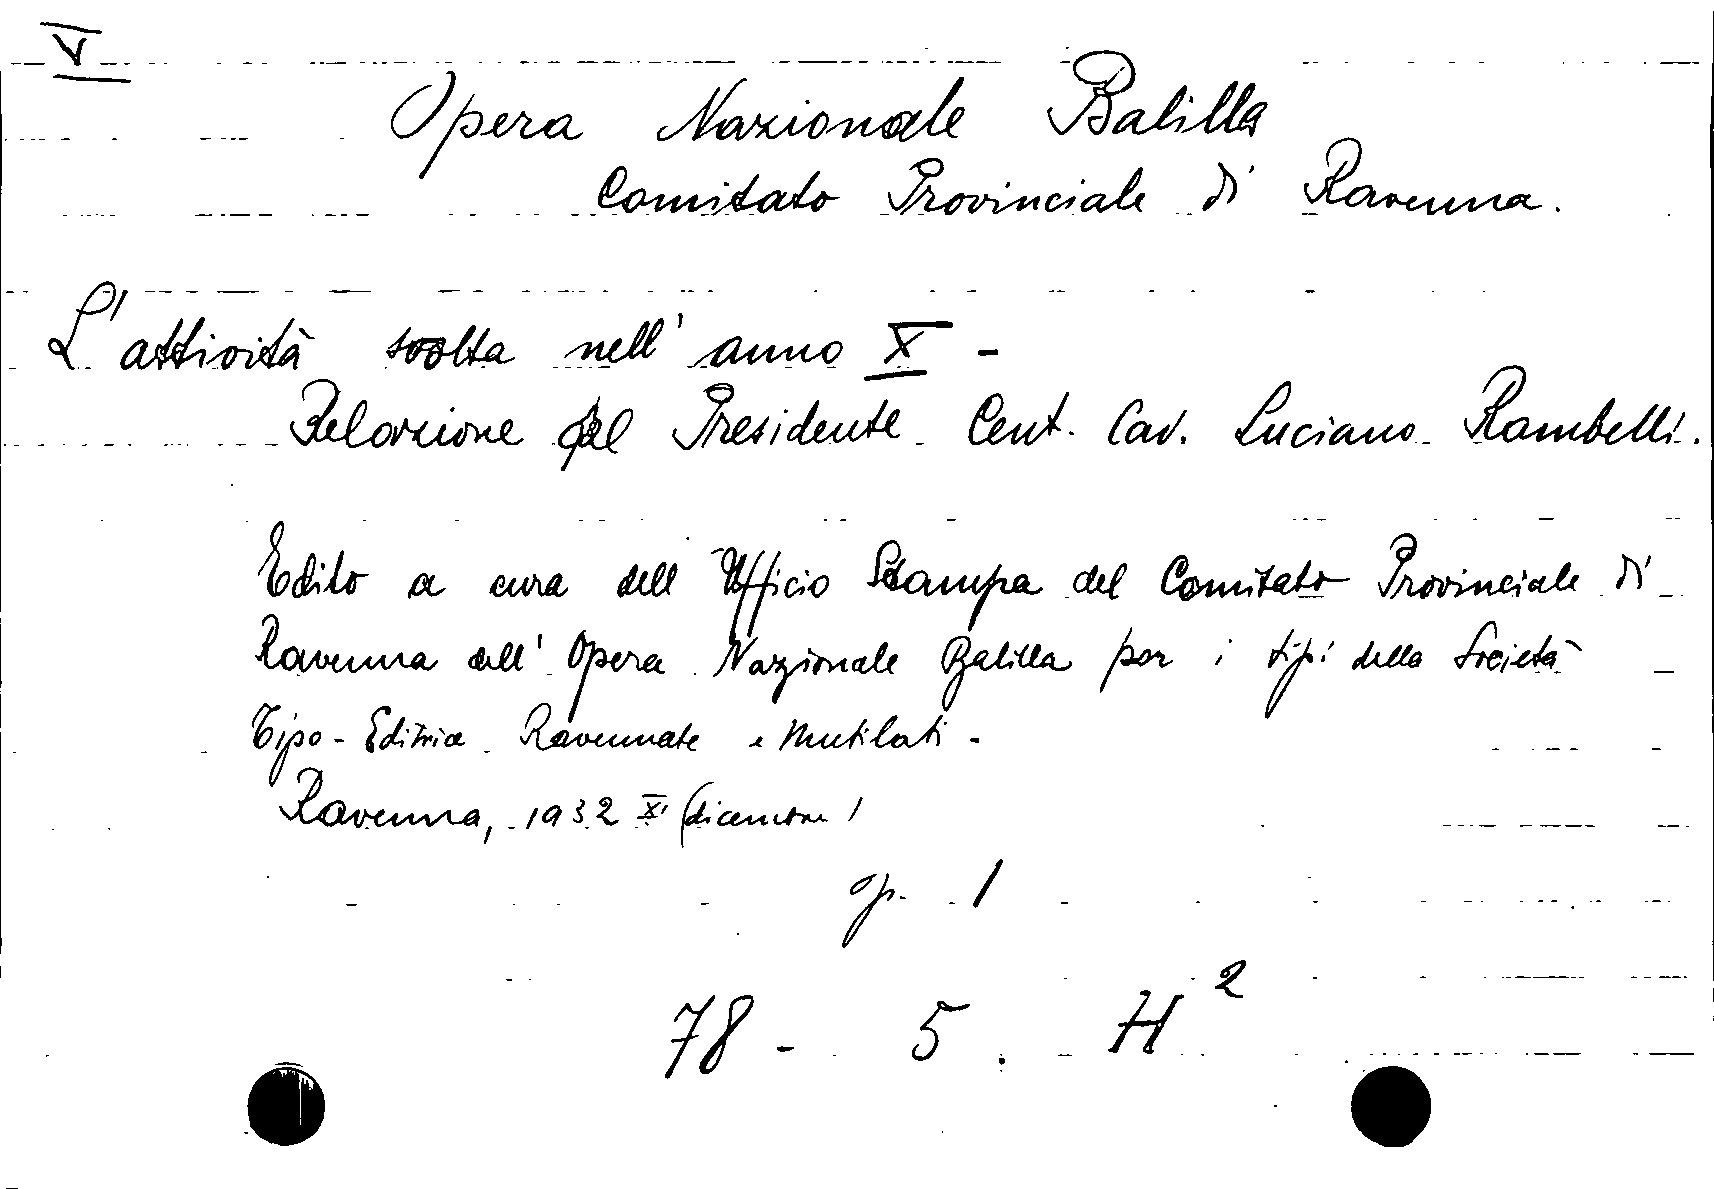 V
Opera Nazionale Balilla
Comitato Provinciale di Ravenna.
L'attività svolta nell'anno X -
Relazione del Presidente Cent. Cav. Luciano Rambelli.
Edito a cura dell'Ufficio Stampa del Comitato Provinciale di
Ravenna dell'Opera Nazionale Balilla per i tipi della Società
Tipo-Editrice Ravennate e Mutilati -
Ravenna, 1932 XI (dicembre)
op. 1
78 - 5. H²